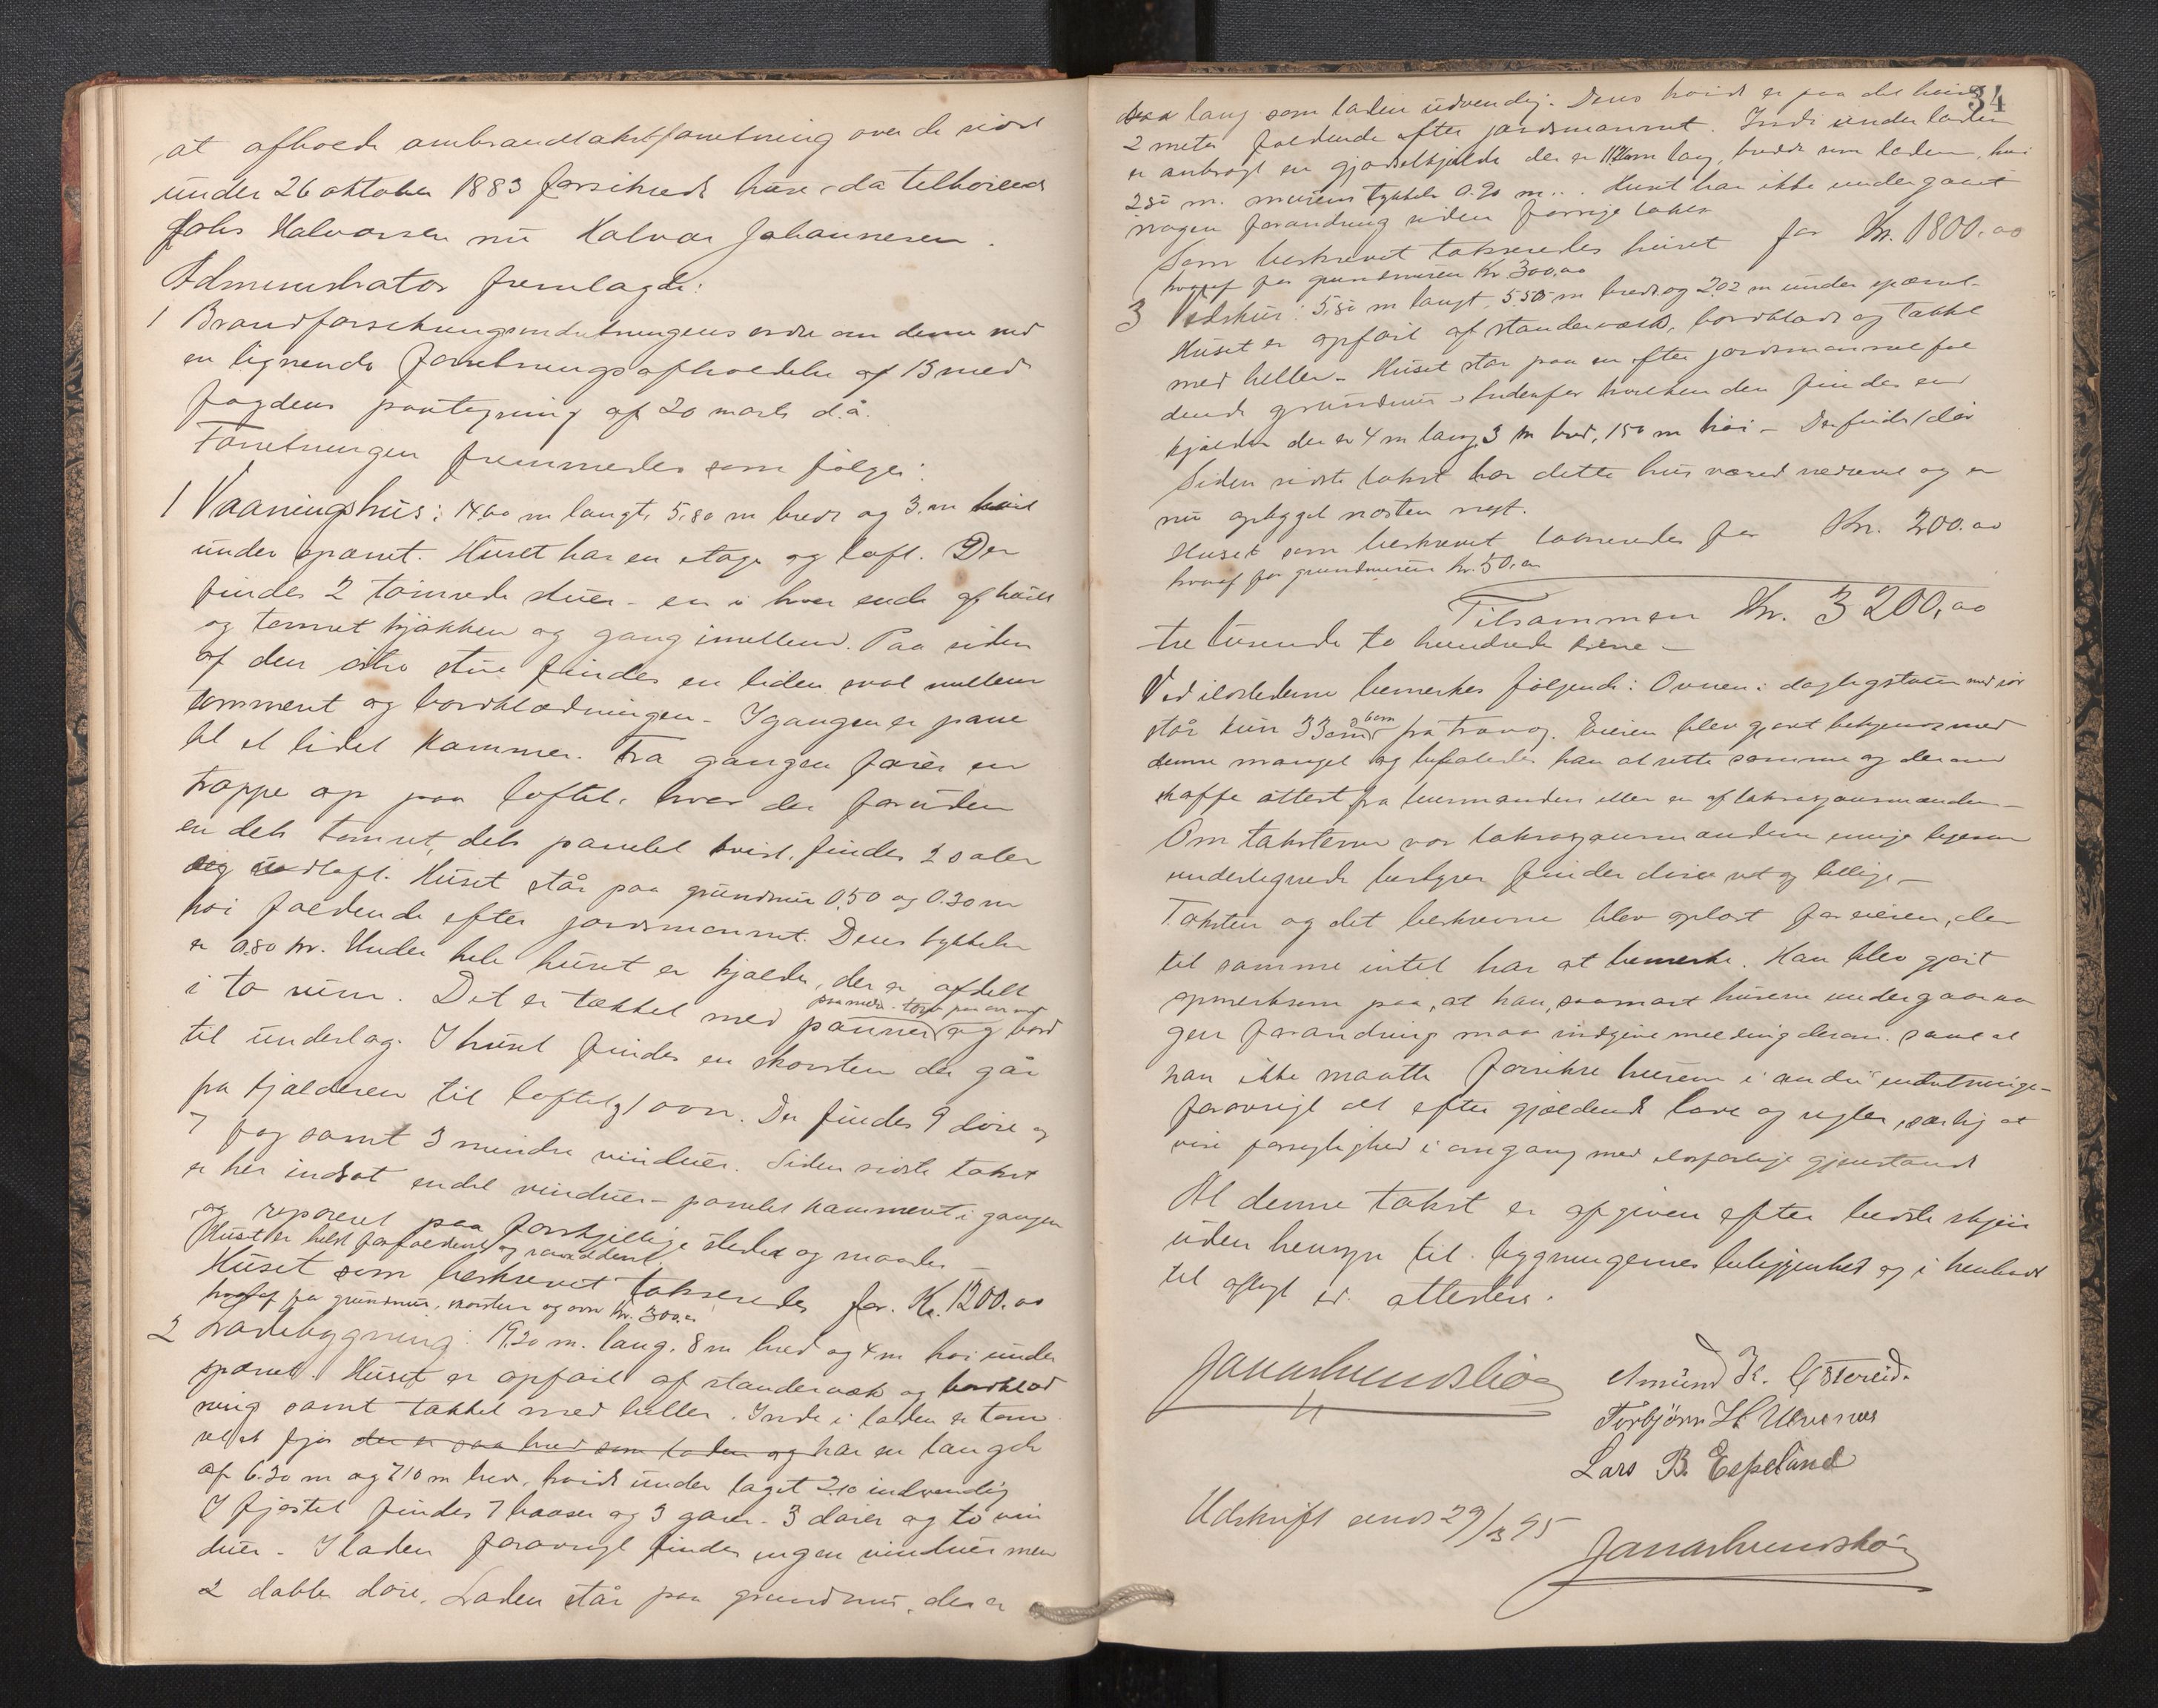 at afholde ombrandtakstforretning over de sidst
under 26 oktober 1883 forsikrede huse, da tilhørende
Johs Halvorsen nu Halvor Johannesen.
Administrator fremlagde:
1 Brandforsikringsindretningens ordre om denne med
en lignende forretnings afholdelse af 13 med
fogdens paategning af 20 marts d.å.
Forretningen fremmedes som følger:
1 Vaaningshus: 14,60 m langt, 5,80 m bredt og 3 m høit
under sparret. Huset har en etage og loft. Der
findes 2 tømrede stuer - en i hver ende af huset
og tømret kjøkken og gang imellem. Paa siden
af den østre stue findes en liden sval mellem
tømmeret og bordklædningen - I gangen er panel
til et lidet kammer. Fra gangen fører en
trappe op paa loftet, hvor der foruden
en dels tømret, dels panelet kvist, findes 2 saler
loft. Huset står paa grundmur 0,50 og 0.30 m
høi faldende efter jordsmonnet. Dens tykkelse
er 0.80 m. Under hele huset er kjælder, der er afdelt
i to rum. Det er tækket med panner og bord
til underlag. I huset findes en skorsten der går
fra kjælderen til loftet, 1 ovn. Der findes 9 døre og
7 fag samt 3 mindre vinduer. Siden sidste takst
er her indsat endel vinduer - panelet kammeret i gangen
og repareret paa forskjellige steder og maader -
Huset er helst forfaldent og
Huset som beskrevet takseredes for Kr. 1200.00
hvoraf for grundmur, skorsten og ovn kr. 300.00
2 Ladebygning: 19.20 m. lang, 8 m bred og 4 m høi under
sparret. Huset er opført af standerværk og bordklæd
ning samt tækket med heller. Inde i laden er tøm
ret et fjøs der er saa bred som laden og har en længde
af 6.30 m og 7.10 m bred, høide under taget 2.10 indvendig
I fjøset findes 7 baaser og 3 garer - 3 dører og to vin
duer - I laden forøvrigt findes ingen vinduer men
2 doble døre. Laden står paa grundmur, der er
34
saa lang som laden udvendig. Dens høide er paa det høieste
2 meter faldende efter jordsmonnet. Inde under laden
er anbragt en gjødselkjælder der er lang, bredde som laden, høi
2.50 m. murens tykkelse 0.90 m. Huset har ikke undergaaet
nogen forandring siden forrige takst
Som beskrevet takseredes huset for Kr. 1800.00
hvoraf for grundmuren Kr 300.00
3 Vedskur: 5,50 m langt, 5.50 m bredt og 2.02 m under sparret -
Huset er opført af standerværk, bordklædt og tækket
med heller - Huset står paa en efter jordsmonnet fal
dende grundmur - indenfor hvilken der findes en
kjælder der er 4 m lang, 3 m bred, 1.50 m høi - Der findes 1 dør
Siden sidste takst har dette hus været nedrevet og er
nu opbygget næsten nyt.
Huset som beskrevet takseredes for Kr. 200.00
hvoraf for grundmuren kr. 50.00
Tilsammen Kr. 3200,00
tre tusende to hundrede kroner -
Ved ildstederne bemerkes følgende: Ovnen i dagligstuen med rør
står kun 33 cm fra trævæg. Eieren blev gjort bekjendt med
denne mangel og befaledes han at rette samme og derom
skaffe attest fra lensmanden eller en af taksasjonsmændene -
Om taksterne var taksasjonsmændene enige ligesom
undertegnede bestyrer finder disse ret og billige -
Taksten og det beskrevne blev oplæst for eieren, der
til samme intet har at bemerke. Han blev gjort
opmerksom paa, at han, saasnart husene undergaar no
gen forandring maa indgive melding derom, samt at
han ikke maatte forsikre husene i andre indretninger -
forøvrigt alt efter gjældende love og regler, særlig at
vise forsigtighed i omgang med ildsfarlige gjenstande
At denne takst er afgiven efter bedste skjøn
uden hensyn til bygningernes beliggenhed og i henhold
til aflagt ed attesteres.
Amund K. Østereid.
Torbjørn H. Ulvenes
Lars B. Espeland
Udskrift sendt 29/3 95